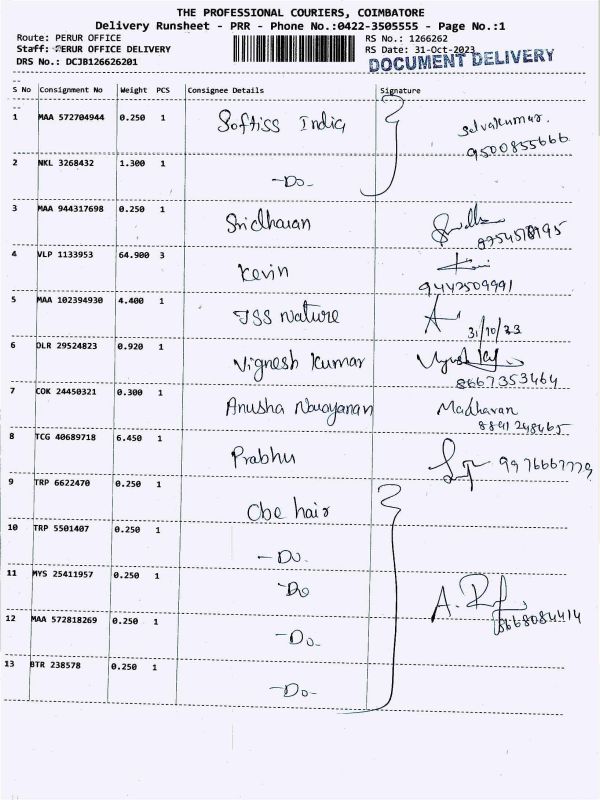 THE PROFESSIONAL COURIERS, COIMBATORE
Delivery Runsheet - PRR - Phone No.:0422-3505555 - Page No.:1
Route: PERUR OFFICE
RS No.: 1266262
Staff: PERUR OFFICE DELIVERY
RS Date: 31-Oct-2023
DRS No.: DCJB126626201
DOCUMENT DELIVERY
S No Consignment No Weight PCS Consignee Details Signature
1 MAA 572704944 0.250 1 Softiss India Selvakumar.
9500855666
2 NKL 3268432 1.300 1
-Do-
3 MAA 944317698 0.250 1 Sridharan
4 VLP 1133953 64.900 3 Kevin
9442509991
5 MAA 102394930 4.400 1 JSS Nature
31/10/23
6 DLR 29524823 0.920 1 Vignesh Kumar
8667353464
7 COK 24450321 0.300 1 Anusha Narayanan Madhavan
8 TCG 40689718 6.450 1 Prabhu
9 TRP 6622470 0.250 1
Obe hair
10 TRP 5501407 0.250 1
-Do-
11 MYS 25411957 0.250 1 -Do
12 MAA 572818269 0.250 1 -Do-
A. 
8668084414
13 BTR 238578 0.250 1
-Do-